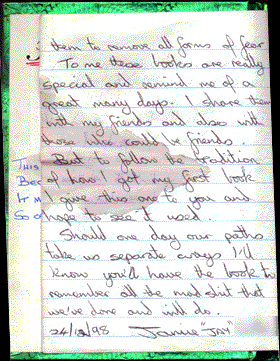 them to remove all forms of fear
To me these books are really
special and remind me of a
great many days. I share them
with my friends and also with
those who could be friends.
But to follow the tradition
of how I got my first book
I give this one to you and
hope to see it used.
Should one day our paths
take us separate ways I'll
know you'll have the book to
remember all the mad shit that
we've done and will do.
24/12/98 Jamie "JAY"
This
Bec
It M
So o